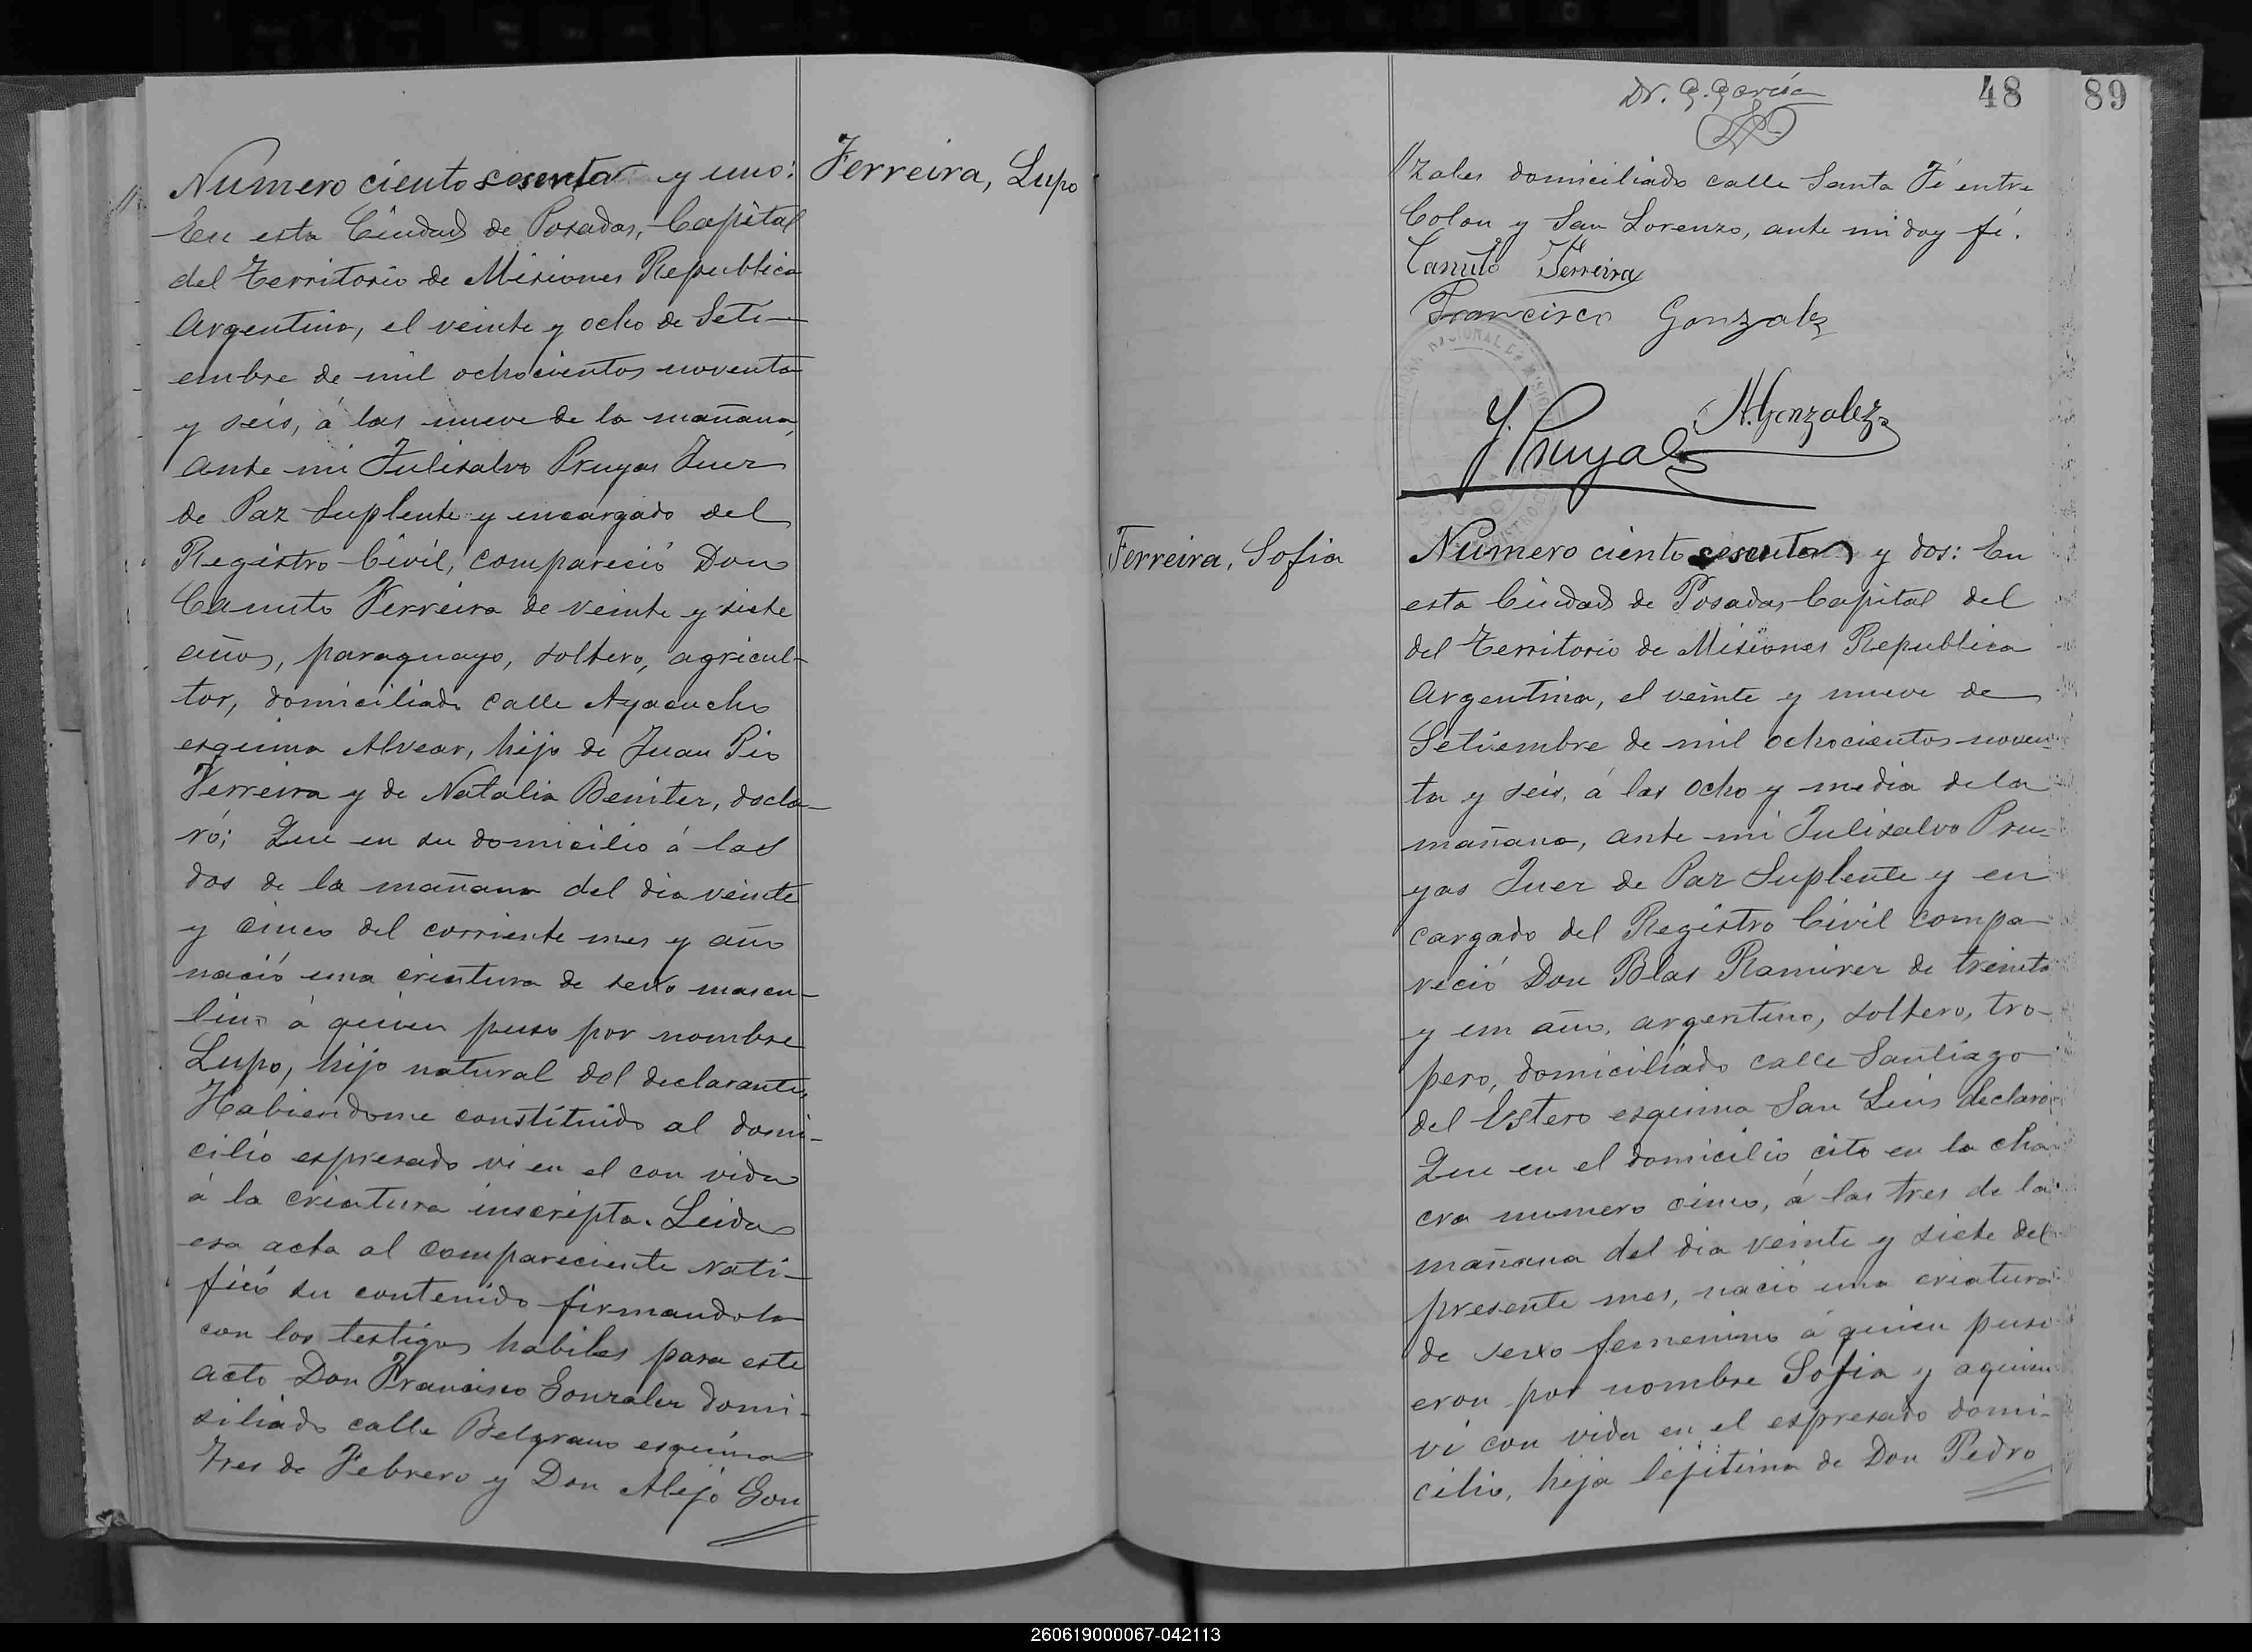 Numero ciento sesenta y uno:
En esta Ciudad de Posadas, Capital
del Territorio de Misiones Republica
Argentina, el veinte y ocho de Seti-
embre de mil ochocientos noventa
y seis, á las nueve de la mañana,
ante mi Julisalvo Pruyas Juez
de Paz Suplente y encargado del
Registro Civil, compareció Don
Canuto Ferreira de veinte y siete
años, paraguayo, soltero, agricul-
tor, domiciliado calle Ayacucho
esquina Alvear, hijo de Juan Pio
Ferreira y de Natalia Benitez, decla-
ró: Que en su domicilio á las
dos de la mañana del dia veinte
y cinco del corriente mes y año
nació una criatura de sexo mascu-
lino á quien puso por nombre
Lupo, hijo natural del declarante,
Habiendome constituido al domi-
cilio espresado vi en el con vida
á la criatura inscripta. Leida
esa acta al compareciente rati-
ficó su contenido firmandola
con los testigos habiles para este
acto Don Francisco Gonzalez domi-
siliado calle Belgrano esquina
Tres de Febrero y Don Alejo Gon
Ferreira, Lupo
Dr. G. García
48
89
//zales domiciliado calle Santa Fé entre
Colon y San Lorenzo, ante mi doy fé.
Canuto Ferreira
Francisco Gonzalez
A. Gonzalez
J. Pruyas
Ferreira, Sofia
Numero ciento sesenta y dos: En
esta Ciudad de Posadas Capital del
del Territorio de Misiones Republica
Argentina, el veinte y nueve de
Setiembre de mil ochocientos noven
ta y seis, á las ocho y media de la
mañana, ante mi Julisalvo Pru-
yas Juez de Paz Suplente y en
cargado del Registro Civil compa
reció Don Blas Ramirez de treinta
y un año, argentino, soltero, tro-
pero, domiciliado calle Santiago
del Estero esquina San Luis declaro
Que en el domicilio cito en la cha
cra numero cinco, á las tres de la
mañana del dia veinte y siete del
presente mes, nació una criatura
de sexo femenino á quien pusi
eron por nombre Sofia y aquien
vi con vida en el espresado domi-
cilio, hija lejitima de Don Pedro
260619000067-042113